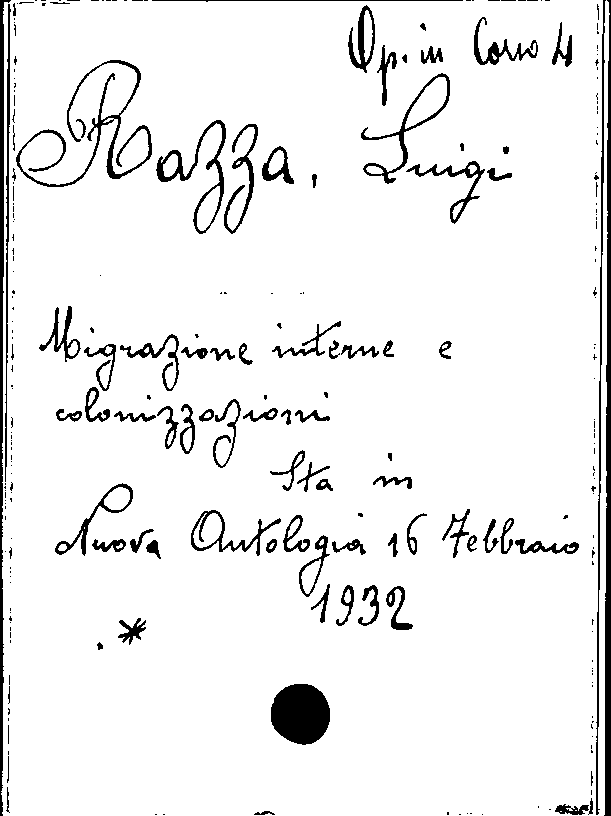 Op. in Corso 4
Razza, Luigi
Migrazione interne e
colonizzazioni
Sta in
Nuova Antologia 16 Febbraio
1932
. *